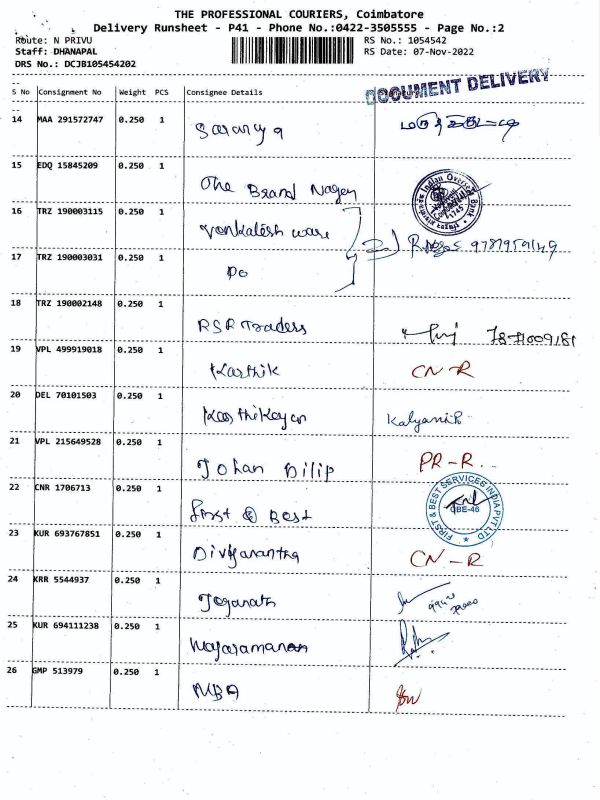 THE PROFESSIONAL COURIERS, Coimbatore
Delivery Runsheet - P41 - Phone No.:0422-3505555 - Page No.:2
Route: N PRIVU RS No.: 1054542
Staff: DHANAPAL RS Date: 07-Nov-2022
DRS No.: DCJB105454202
S No Consignment No Weight PCS Consignee Details
DOCUMENT DELIVERY
14 MAA 291572747 0.250 1 Saranya
15 EDQ 15845209 0.250 1 The Brand Nagen
Indian Overseas Bank
1745
16 TRZ 190003115 0.250 1 Venkatesh ware
17 TRZ 190003031 0.250 1 Do
18 TRZ 190002148 0.250 1 RSR Traders
19 VPL 499919018 0.250 1 Karthik CN-R
20 DEL 70101503 0.250 1 Karthikeyan
21 VPL 215649528 0.250 1 Tohan Dilip PR-R
22 CNR 1706713 0.250 1 First @ Best
FIRST & BEST SERVICES INDIA PVT LTD
CBE-46
23 KUR 693767851 0.250 1 Divyanantha CN-R
24 KRR 5544937 0.250 1 Joganath
25 KUR 694111238 0.250 1
26 GMP 513979 0.250 1 MBA